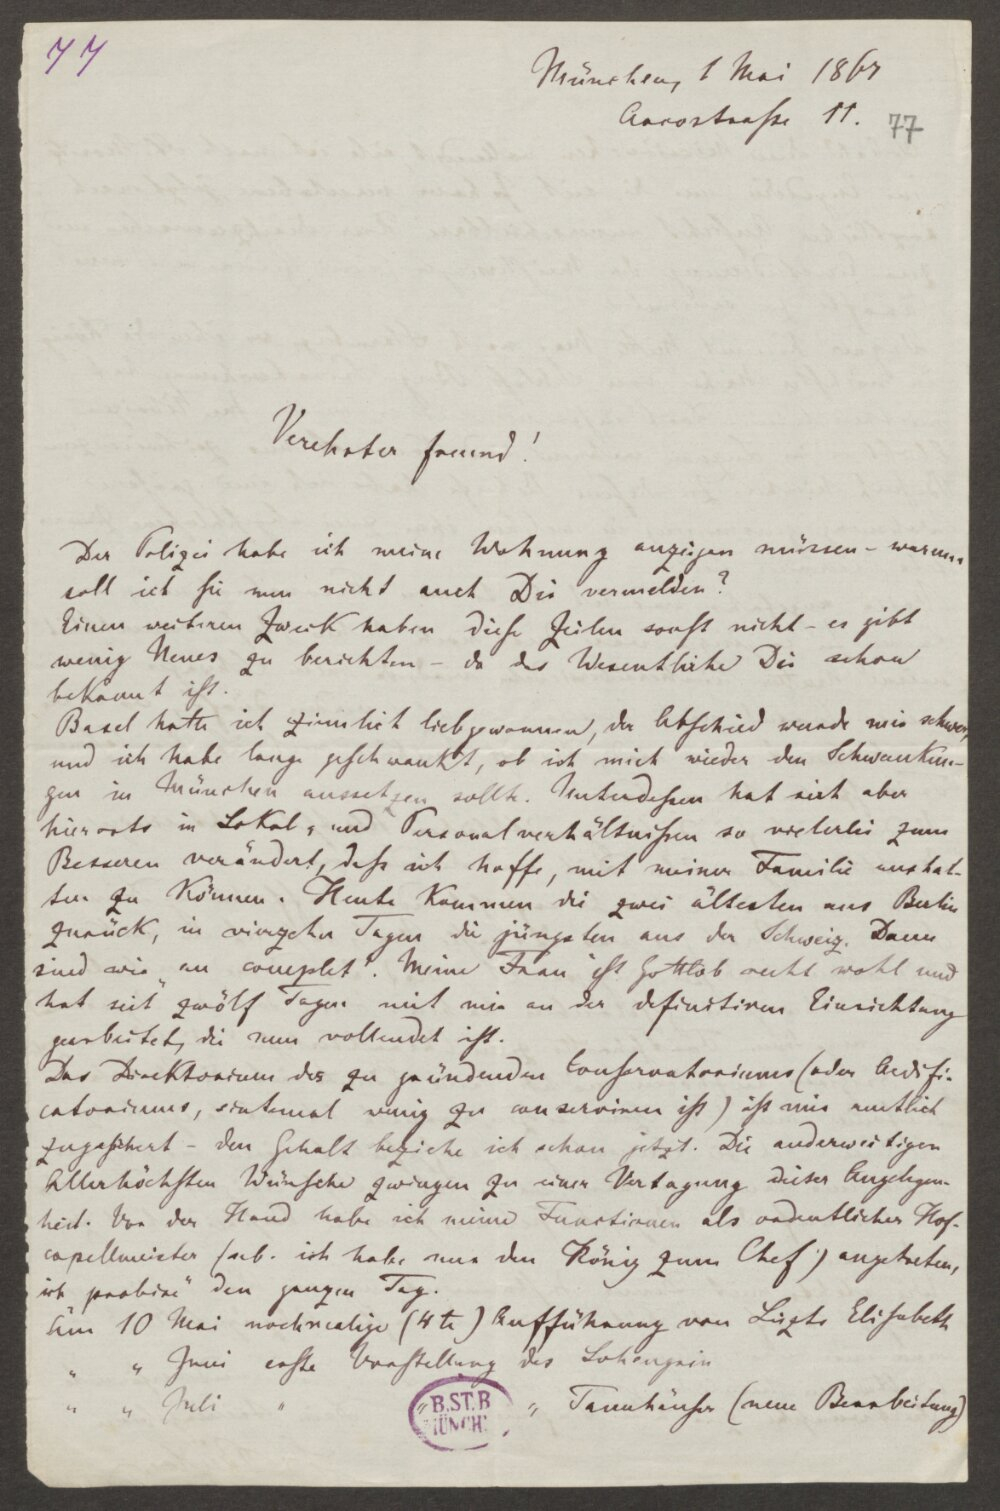 77
München, 1 Mai 1867
Arcostraße 11.
77
Verehrter Freund!
Der Polizei habe ich meine Wohnung anzeigen müssen – warum
soll ich sie nun nicht auch Dir vermelden?
Einen weiteren Zweck haben diese Zeilen sonst nicht – es gibt
wenig Neues zu berichten – da das Wesentliche Dir schon
bekannt ist.
Basel hatte ich ziemlich liebgewonnen, der Abschied wurde mir schwer,
und ich habe lange geschwankt, ob ich mich wieder den Schwankun-
gen in München aussetzen sollte. Unterdessen hat sich aber
hierorts in Lokal- und Personalverhältnissen so vielerlei zum
Besseren verändert, daß ich hoffe, mit meiner Familie aushal-
ten zu können. Heute kommen die zwei ältesten aus Berlin
zurück, in vierzehn Tagen die jüngsten aus der Schweiz. Dann
sind wir „au complet“. Meine Frau ist Gottlob recht wohl und
hat seit zwölf Tagen mit mir an der definitiven Einrichtung
gearbeitet, die nun vollendet ist.
Das Direktorium des zu gründenden Conservatoriums (oder Aedifi-
catoriums, sintemal wenig zu conserviren ist) ist mir amtlich
zugesichert – den Gehalt beziehe ich schon jetzt. Die anderweitigen
Allerhöchsten Wünsche zwingen zu einer Vertagung dieser Angelegen-
heit. Vor der Hand habe ich meine Functionen als ordentlicher Hof-
capellmeister (n.b. ich habe nur den König zum Chef) angetreten,
ich „probire“ den ganzen Tag.
Am 10 Mai nochmalige (4te) Aufführung von Liszts Elisabeth
„ „ Juni erste Vorstellung des Lohengrin
„ „ Juli „ „ Tannhäuser (neue Bearbeitung)
B.ST.B
MÜNCH.